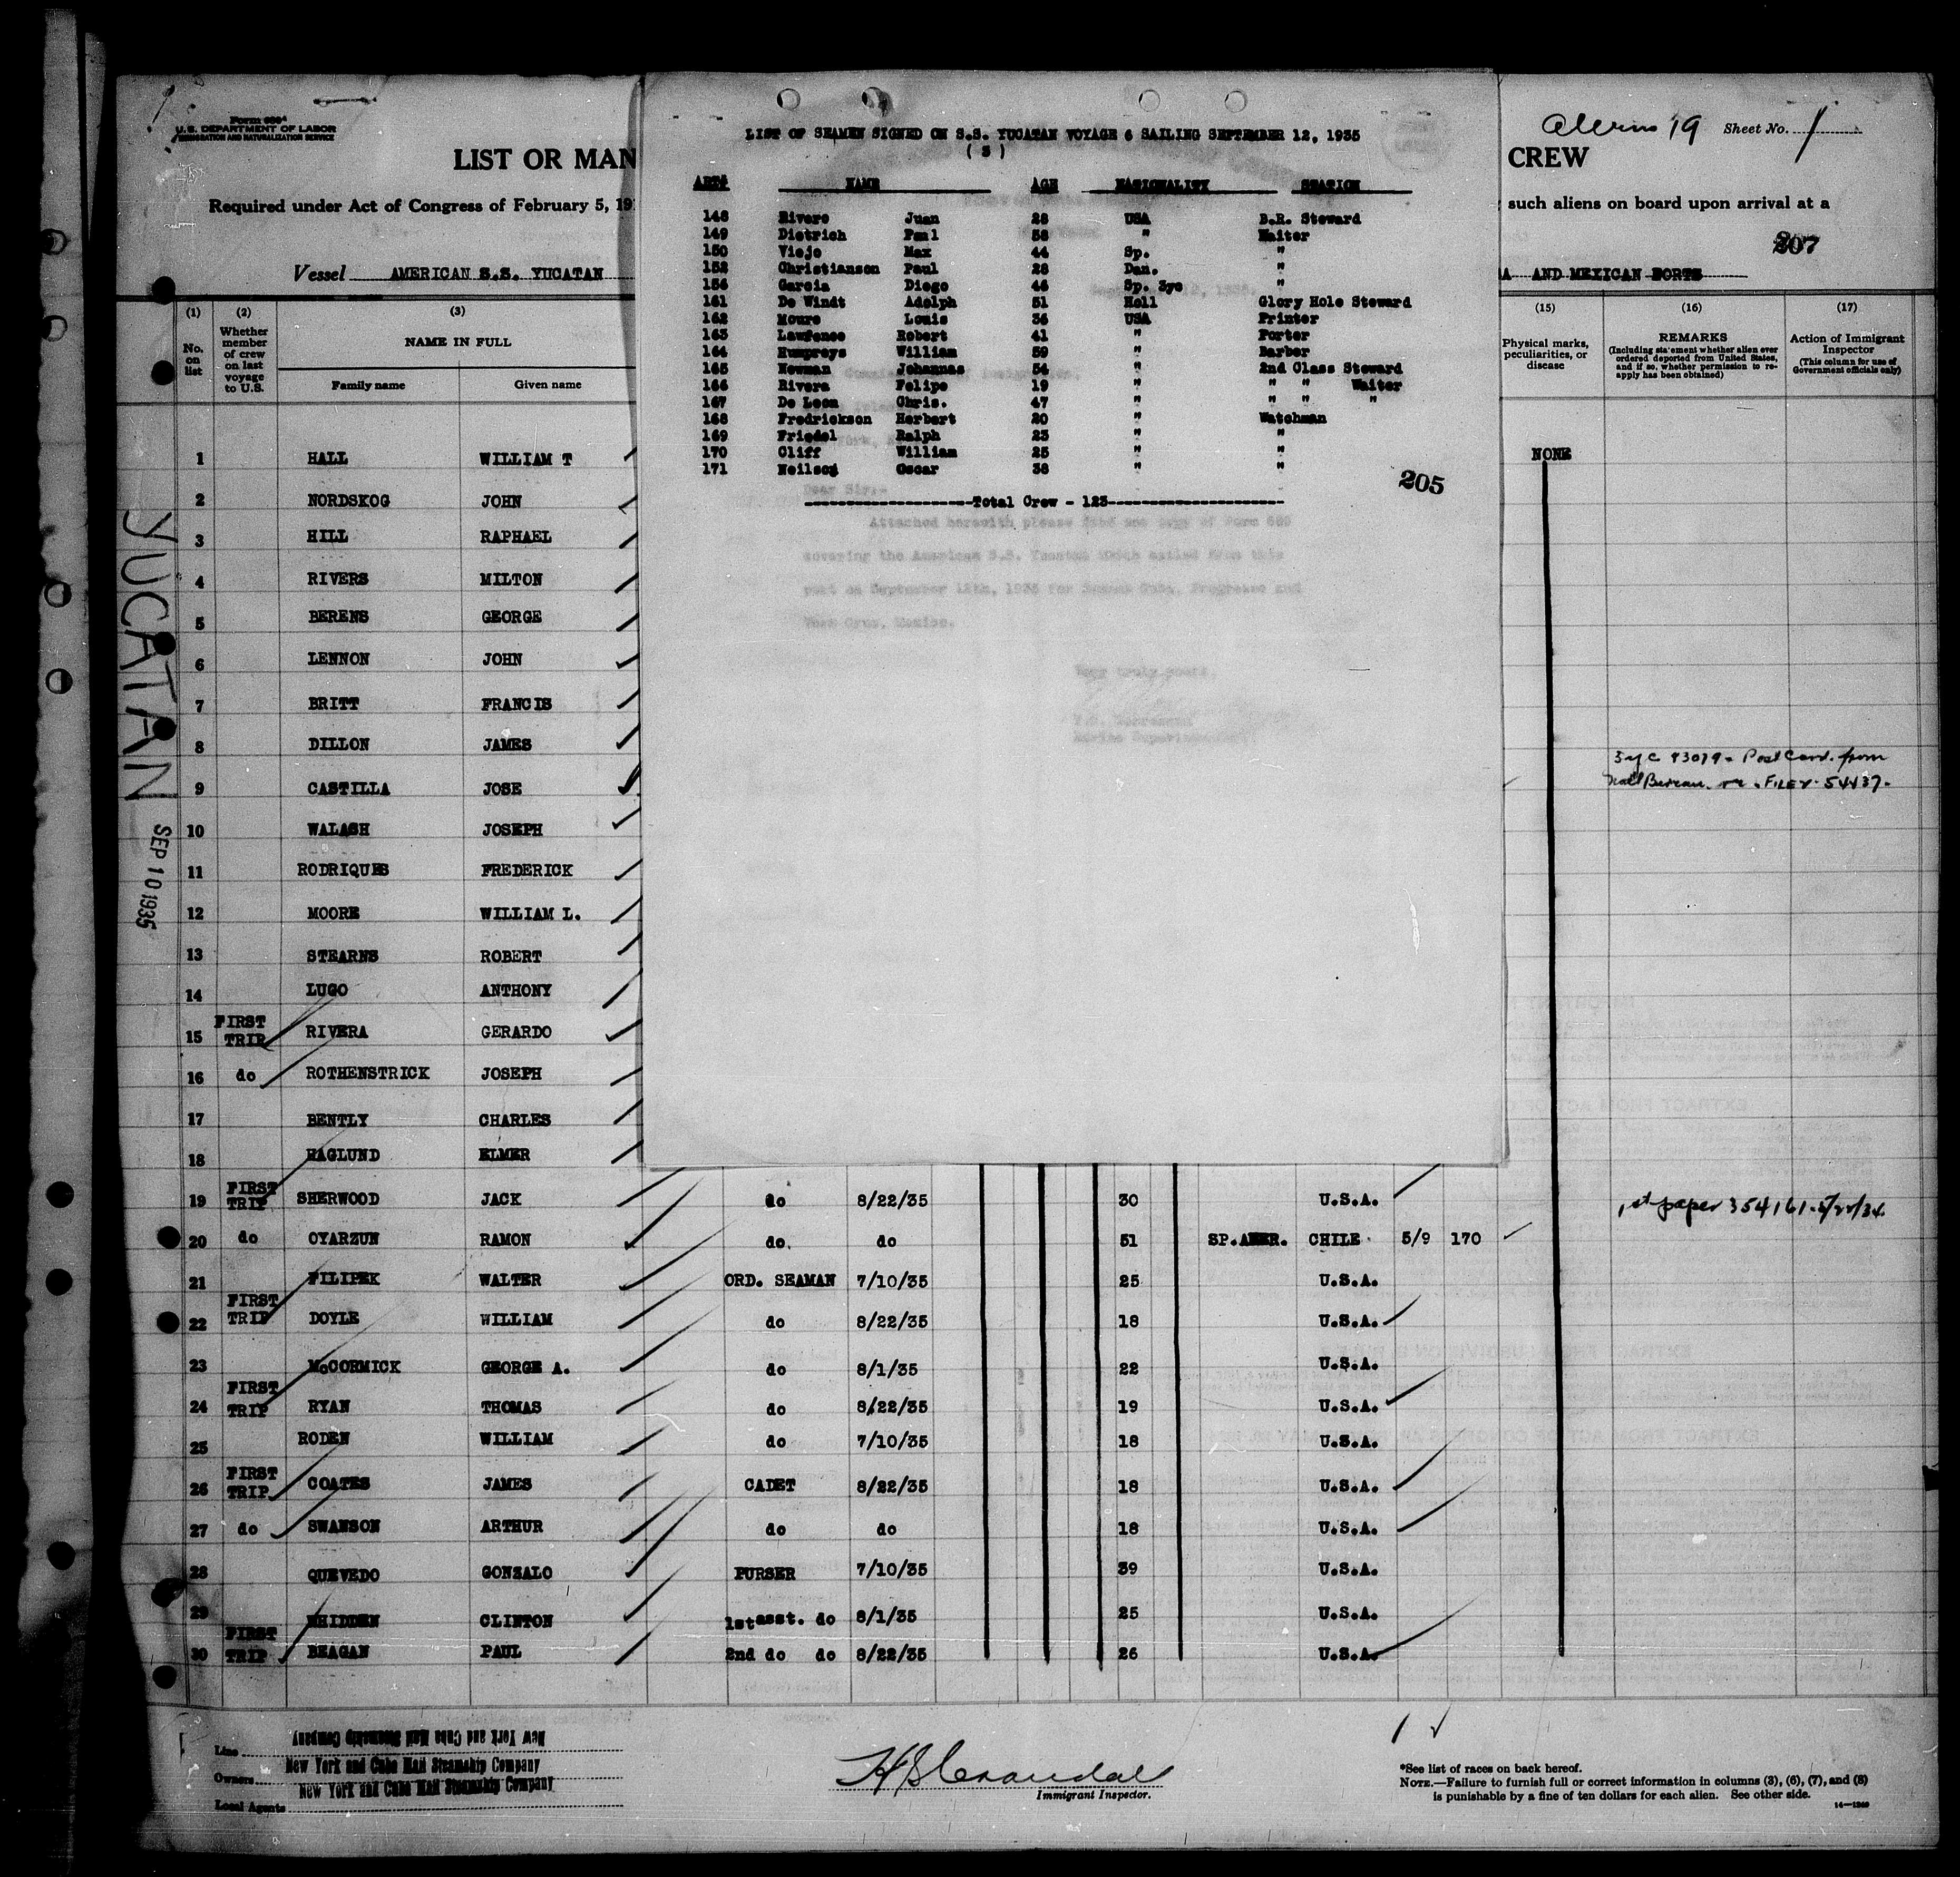 Form 689
U.S. DEPARTMENT OF LABOR
IMMIGRATION AND NATURALIZATION SERVICE
LIST OR MAN
CREW
Required under Act of Congress of February 5, 19
such aliens on board upon arrival at a
Vessel AMERICAN S.S. YUCATAN
AND MEXICAN PORTS
19 Sheet No. 1
207
LIST OF SEAMEN SIGNED ON S.S. YUCATAN VOYAGE 6 SAILING SEPTEMBER 12, 1935
( 3 )
ART# NAME AGE NATIONALITY STATION
148 Rivero Juan 28 USA B.R. Steward
149 Dietrich Paul 58 " Waiter
150 Viejo Max 44 Sp. "
152 Christianson Paul 28 Dan. "
156 Garcia Diego 46 Sp. 3yc "
161 De Windt Adolph 51 Holl Glory Hole Steward
162 Moure Louis 36 USA Printer
163 Lawrence Robert 41 " Porter
164 Humpreys William 59 " Barber
165 Newman Johannas 54 " 2nd Class Steward
166 Rivera Felipe 19 " " " Waiter
167 De Leon Chris. 47 " " " "
168 Fredrickson Herbert 20 " Watchman
169 Friedel Ralph 23 " "
170 Cliff William 25 " "
171 Neilson Oscar 38 " "
Total Crew - 123
205
Dear Sir:-
Attached herewith please find one copy of Form 689
covering the American S.S. Yucatan which sailed from this
port on September 12th, 1935 for Havana Cuba, Progreso and
Vera Cruz, Mexico.
Very truly yours,
(1) (2) (3) (15) (16) (17)
No. on list
Whether member of crew on last voyage to U.S.
NAME IN FULL
Family name Given name
Physical marks, peculiarities, or disease
REMARKS
(Including statement whether alien ever ordered deported from United States, and if so, whether permission to re-apply has been obtained)
Action of Immigrant Inspector
(This column for use of Government officials only)
YUCATAN
SEP 10 1935
1 HALL WILLIAM T NONE
2 NORDSKOG JOHN
3 HILL RAPHAEL
4 RIVERS MILTON
5 BERENS GEORGE
6 LENNON JOHN
7 BRITT FRANCIS
8 DILLON JAMES
9 CASTILLA JOSE 3yc 43079 - Post Card from Natl Bureau. FILE 54437-
10 WALASH JOSEPH
11 RODRIQUES FREDERICK
12 MOORE WILLIAM L.
13 STEARNS ROBERT
14 LUGO ANTHONY
15 FIRST TRIP RIVERA GERARDO
16 do ROTHENSTRICK JOSEPH
17 BENTLY CHARLES
18 HAGLUND ELMER
19 FIRST TRIP SHERWOOD JACK do 8/22/35 30 U.S.A. 1st paper 354161
20 do OYARZUN RAMON do. do 51 SP.AMER. CHILE 5/9 170
21 FILIPEK WALTER ORD. SEAMAN 7/10/35 25 U.S.A.
22 FIRST TRIP DOYLE WILLIAM do 8/22/35 18 U.S.A.
23 McCORMICK GEORGE A. do 8/1/35 22 U.S.A.
24 FIRST TRIP RYAN THOMAS do 8/22/35 19 U.S.A.
25 RODEN WILLIAM do 7/10/35 18 U.S.A.
26 FIRST TRIP COATES JAMES CADET 8/22/35 18 U.S.A.
27 do SWANSON ARTHUR do do 18 U.S.A.
28 QUEVEDO GONZALO PURSER 7/10/35 39 U.S.A.
29 WHIDDEN CLINTON 1st asst. do 8/1/35 25 U.S.A.
30 FIRST TRIP BEAGAN PAUL 2nd do do 8/22/35 26 U.S.A.
Line New York and Cuba Mail Steamship Company
Owners New York and Cuba Mail Steamship Company
Local Agents New York and Cuba Mail Steamship Company
H B Crandal
Immigrant Inspector.
*See list of races on back hereof.
NOTE.—Failure to furnish full or correct information in columns (3), (6), (7), and (8)
is punishable by a fine of ten dollars for each alien. See other side.
14—1240